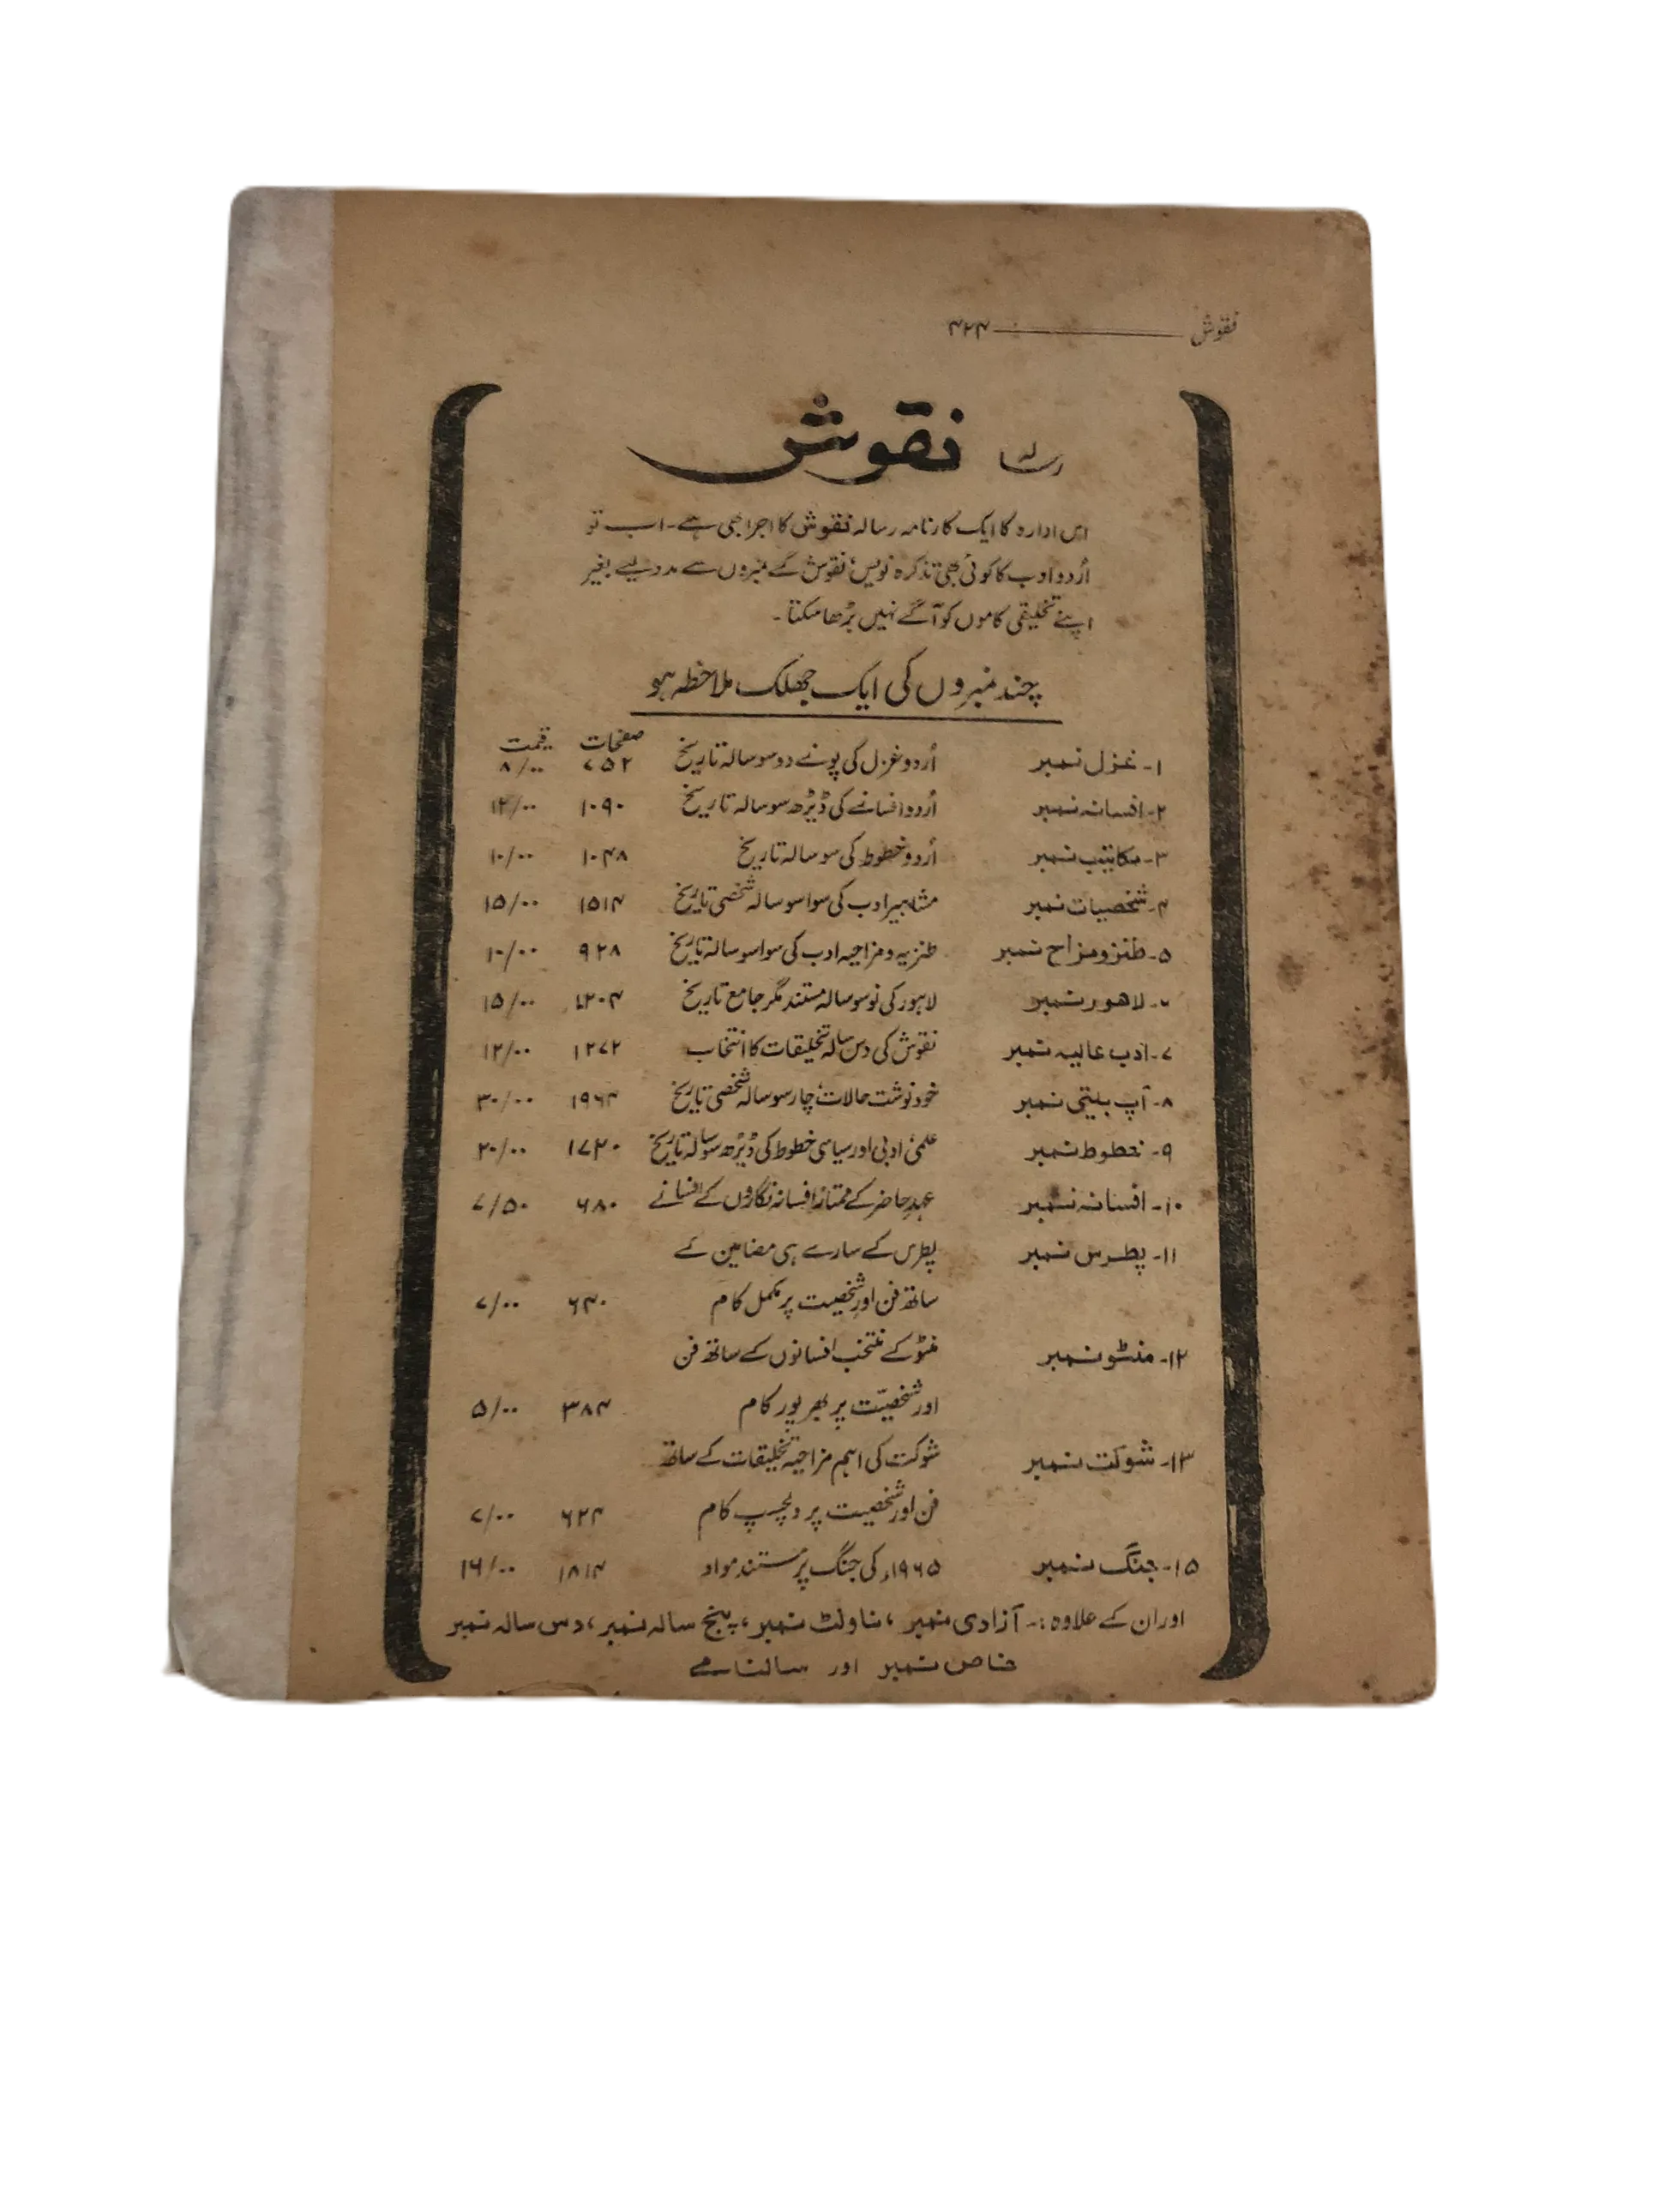 نقوش ۴۲۴
رسالہ نقوش
اس ادارہ کا ایک کارنامہ رسالہ نقوش کا اجرا بھی ہے۔ اب تو
اُردو ادب کا کوئی بھی تذکرہ نویس، نقوش کے نمبروں سے مدد لیے بغیر
اپنے تخلیقی کاموں کو آگے نہیں بڑھا سکتا۔
چند نمبروں کی ایک جھلک ملاحظہ ہو
صفحات قیمت
۱۔ غزل نمبر اُردو غزل کی پونے دو سو سالہ تاریخ ۷۵۲ ۸/۰۰
۲۔ افسانہ نمبر اُردو افسانے کی ڈیڑھ سو سالہ تاریخ ۱۰۹۰ ۱۲/۰۰
۳۔ مکاتیب نمبر اُردو خطوط کی سو سالہ تاریخ ۱۰۴۸ ۱۰/۰۰
۴۔ شخصیات نمبر مشاہیر ادب کی سوا سو سالہ شخصی تاریخ ۱۵۱۴ ۱۵/۰۰
۵۔ طنز و مزاح نمبر طنزیہ و مزاحیہ ادب کی سوا سو سالہ تاریخ ۹۲۸ ۱۰/۰۰
۶۔ لاھور نمبر لاہور کی نو سو سالہ مستند مگر جامع تاریخ ۱۲۰۴ ۱۵/۰۰
۷۔ ادب عالیہ نمبر نقوش کی دس سالہ تخلیقات کا انتخاب ۱۲۷۲ ۱۲/۰۰
۸۔ آپ بیتی نمبر خود نوشت حالات، چار سو سالہ شخصی تاریخ ۱۹۶۴ ۳۰/۰۰
۹۔ خطوط نمبر علمی، ادبی اور سیاسی خطوط کی ڈیڑھ سو سالہ تاریخ ۱۷۲۰ ۲۰/۰۰
۱۰۔ افسانہ نمبر عہدِ حاضر کے ممتاز افسانہ نگاروں کے افسانے ۶۸۰ ۷/۵۰
۱۱۔ پطرس نمبر پطرس کے سارے ہی مضامین کے
ساتھ فن اور شخصیت پر مکمل کام ۶۴۰ ۷/۰۰
۱۲۔ منٹو نمبر منٹو کے منتخب افسانوں کے ساتھ فن
اور شخصیّت پر بھرپور کام ۳۸۴ ۵/۰۰
۱۳۔ شوکت نمبر شوکت کی اہم مزاحیہ تخلیقات کے ساتھ
فن اور شخصیت پر دلچسپ کام ۶۲۴ ۷/۰۰
۱۵۔ جنگ نمبر ۱۹۶۵ء کی جنگ پر مستند مواد ۱۸۱۴ ۱۶/۰۰
اور ان کے علاوہ:۔ آزادی نمبر، ناولٹ نمبر، پنج سالہ نمبر، دس سالہ نمبر
خاص نمبر اور سالنامے